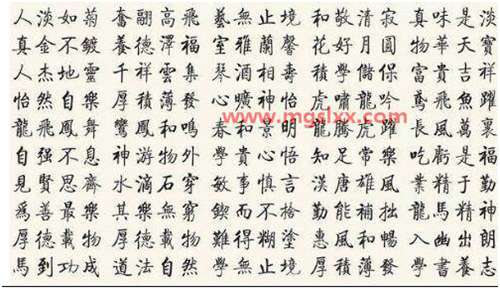 人淡如菊 奮翮高飛 藝無止境 和敬清寂 真味是淡
真金不鍍 養德澤福 室雅蘭馨 花好月圓 物華天寶
人杰地靈 千祥雲集 琴酒相 學儲 富貴吉祥
怡然自樂 厚積薄發 心曠神怡 虎嘯龍吟 鳶飛魚躍
www.mgslxx.com
龍飛鳳舞 鸞鳳和鳴 春和景明 龍騰虎躍 長風萬裏
自强不息 神游物外 心悟 知足常樂 吃虧是福
見賢思齊 水滴石穿 敏事慎言 漢唐雄風 業精于勤
爲善最樂 其樂無窮 而不 勤能補拙 龍馬精神
厚德載物 厚德載物 難得糊塗 惠風和暢 入幽出朗
馬到功成 道法自然 學無止境 厚積薄發 學書養志